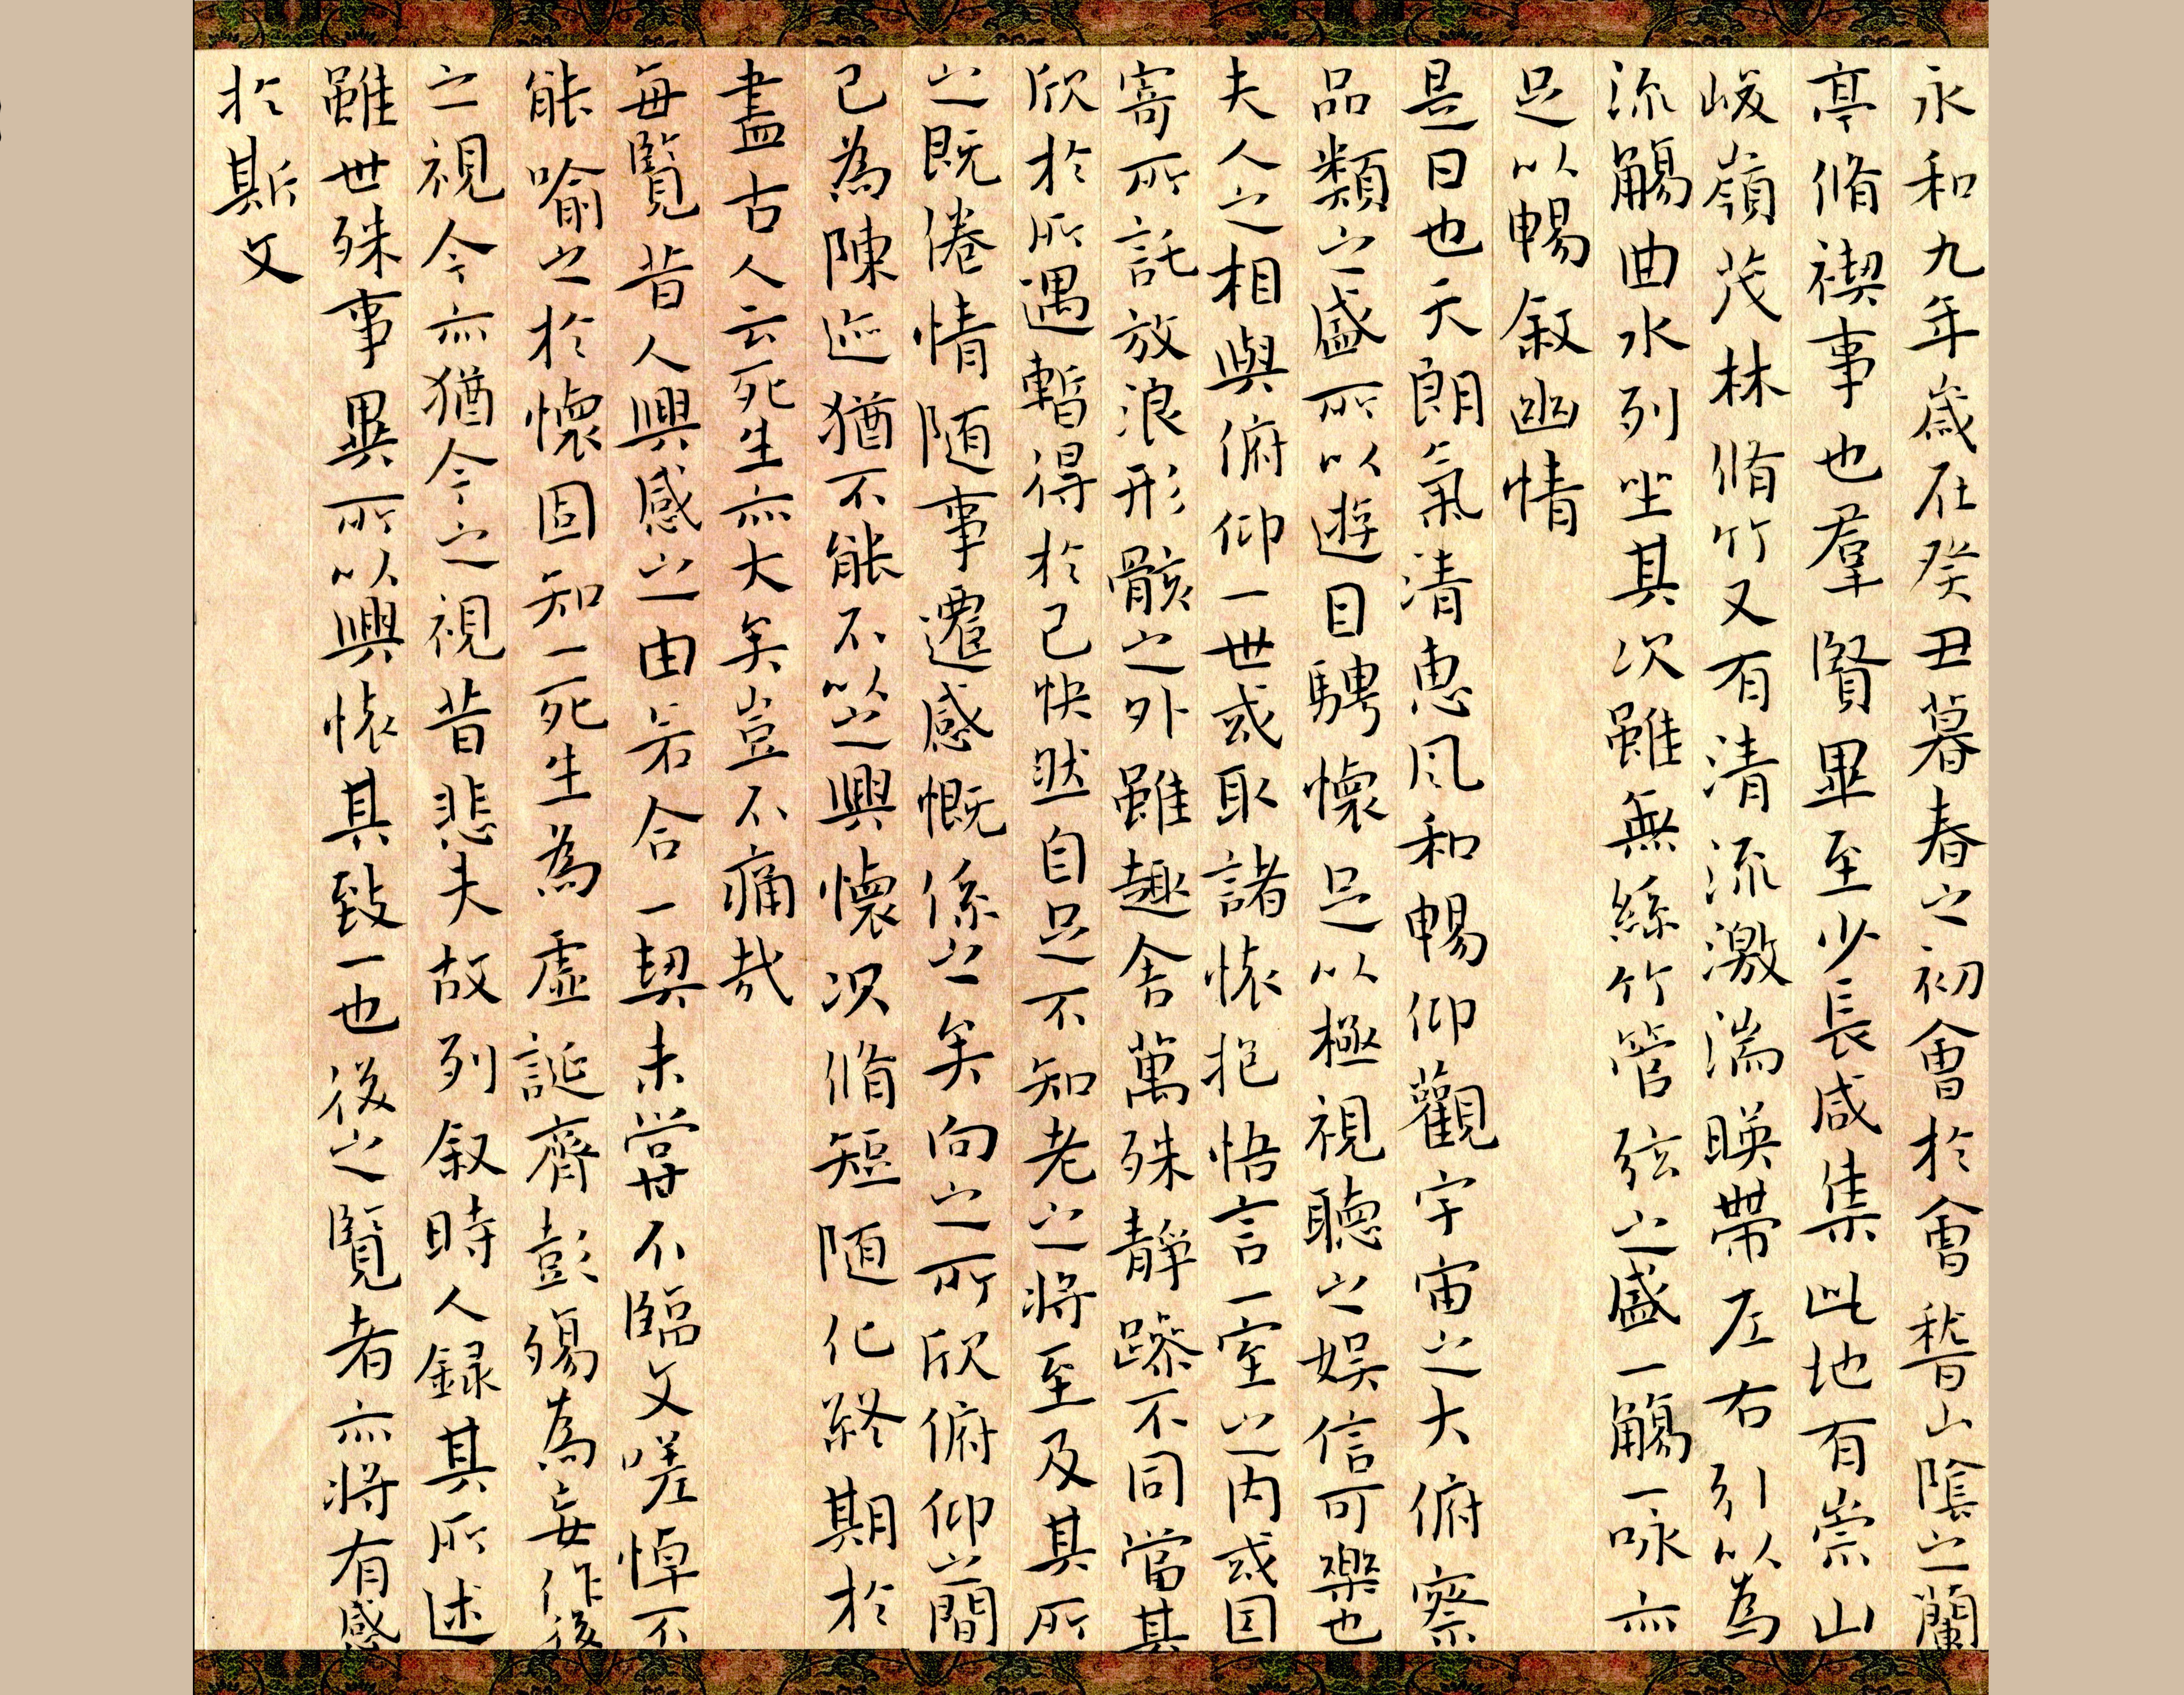 永和九年歳在癸丑暮春之初會於會嵇山陰之蘭
亭脩禊事也羣賢畢至少長咸集此地有崇山
峻嶺茂林脩竹又有清流激湍暎帶左右引以為
流觴曲水列坐其次雖無絲竹管弦之盛一觴一詠亦
足以暢叙幽情
是日也天朗氣清惠風和暢仰觀宇宙之大俯察
品類之盛所以遊目騁懷足以極視聽之娱信可樂也
夫人之相與俯仰一世或取諸懐抱悟言一室之内或因
寄所託放浪形骸之外雖趣舍萬殊靜躁不同當其
欣於所遇暫得於己快然自足不知老之将至及其所
之既倦情随事遷感慨係之矣向之所欣俯仰之間
已為陳迹猶不能不以之興懷况脩短随化終期於
盡古人云死生亦大矣豈不痛哉
每覽昔人興感之由若合一契未嘗不臨文嗟悼不
能喻之於懷固知一死生為虛誕齊彭殤為妄作後
之視今亦猶今之視昔悲夫故列叙時人録其所述
雖世殊事異所以興懐其致一也後之覽者亦将有感
於斯文